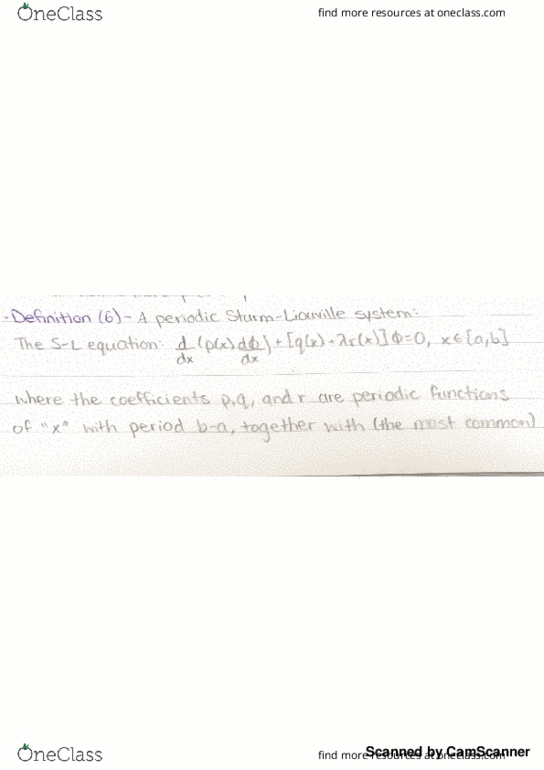 OneClass
find more resources at oneclass.com
-Definition (6)- A periodic Sturm-Liouville system:
The S-L equation: d/dx (p(x) dΦ/dx) + [q(x) + λr(x)] Φ=0, x∈[a,b]
where the coefficients p,q, and r are periodic functions
of "x" with period b-a, together with (the most common)
OneClass
find more resources at oneclass.com
Scanned by CamScanner